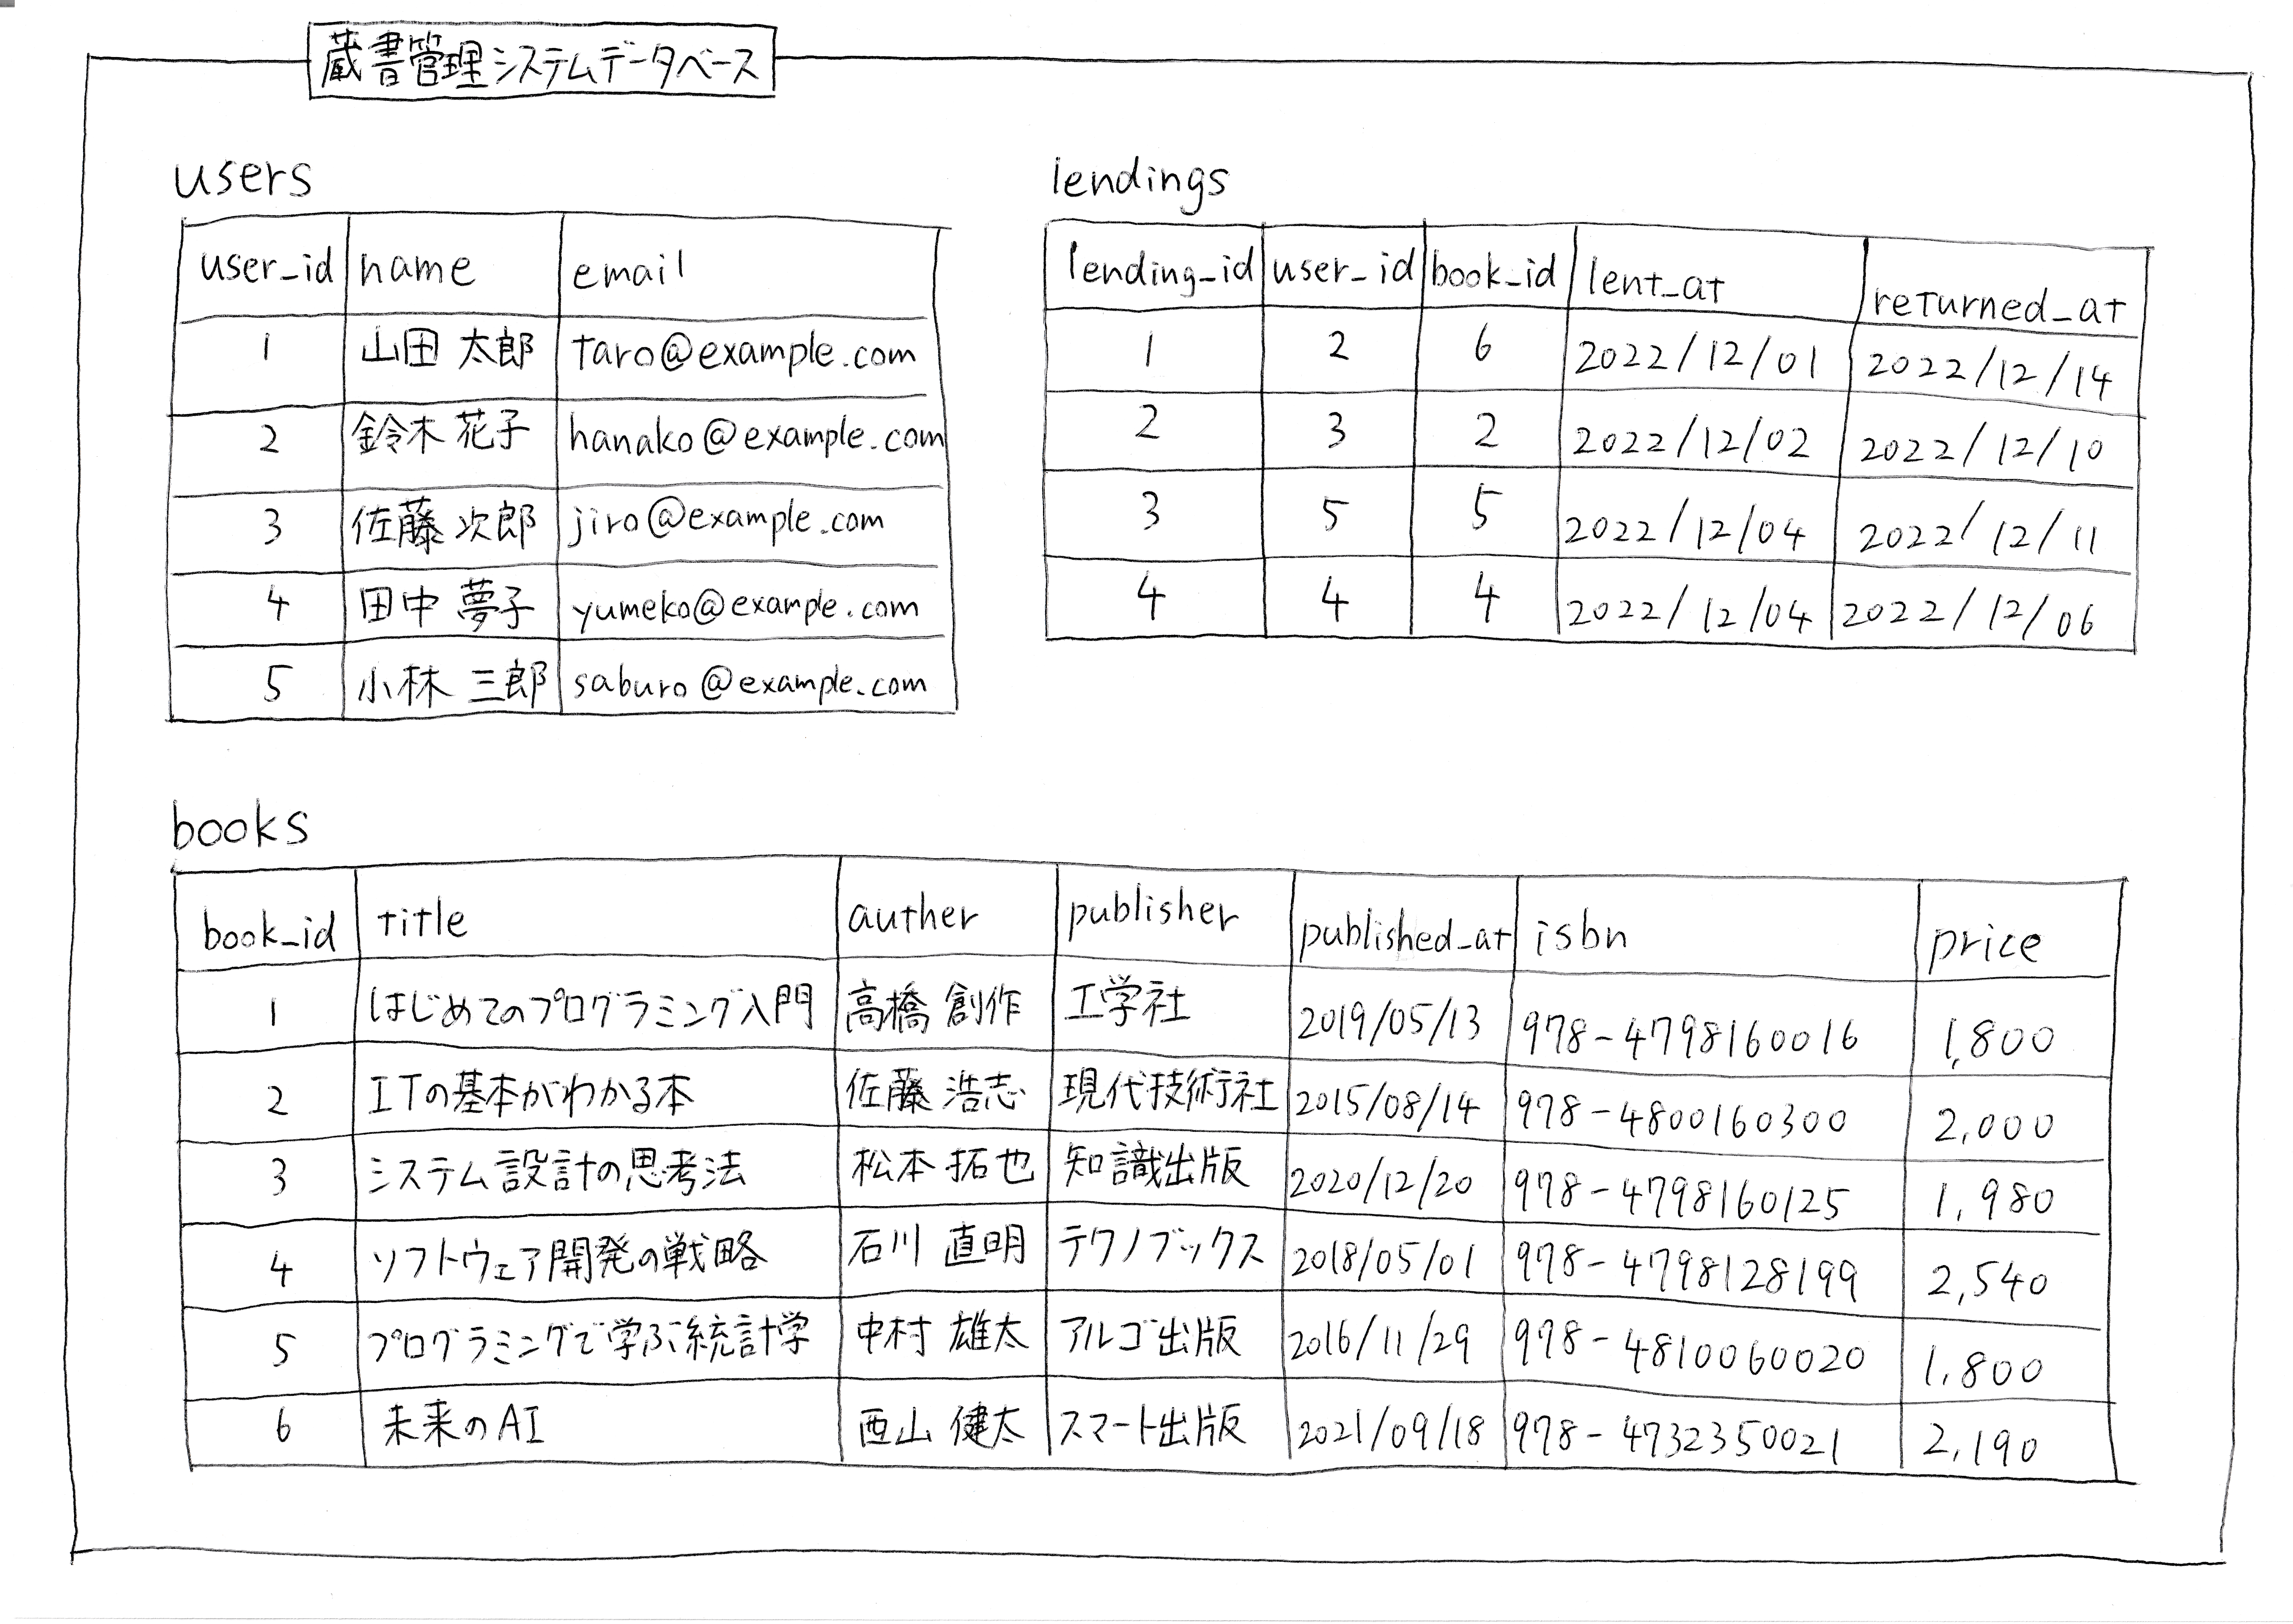 蔵書管理システムデータベース
users
user_id name email
1 山田 太郎 taro@example.com
2 鈴木 花子 hanako@example.com
3 佐藤 次郎 jiro@example.com
4 田中 夢子 yumeko@example.com
5 小林 三郎 saburo@example.com
lendings
lending_id user_id book_id lent_at returned_at
1 2 6 2022/12/01 2022/12/14
2 3 2 2022/12/02 2022/12/10
3 5 5 2022/12/04 2022/12/11
4 4 4 2022/12/04 2022/12/06
books
book_id title auther publisher published_at isbn price
1 はじめてのプログラミング入門 高橋 創作 工学社 2019/05/13 978-4798160016 1,800
2 ITの基本がわかる本 佐藤 浩志 現代技術社 2015/08/14 978-4800160300 2,000
3 システム設計の思考法 松本 拓也 知識出版 2020/12/20 978-4798160125 1,980
4 ソフトウェア開発の戦略 石川 直明 テクノブックス 2018/05/01 978-4798128199 2,540
5 プログラミングで学ぶ統計学 中村 雄太 アルゴ出版 2016/11/29 978-4810060020 1,800
6 未来のAI 西山 健太 スマート出版 2021/09/18 978-4732350021 2,190